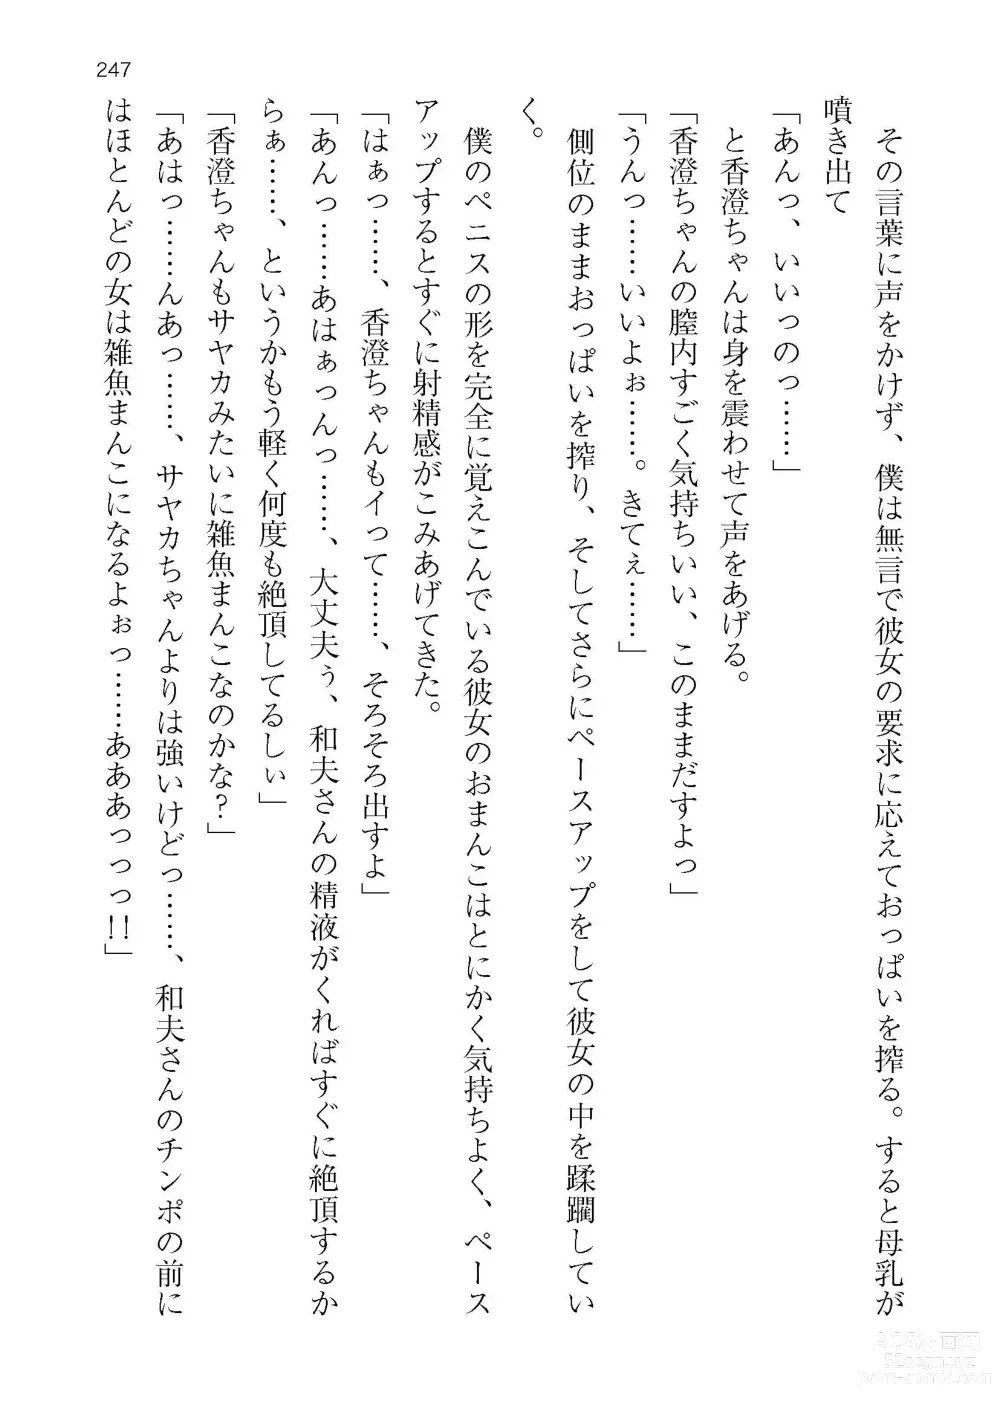 247
その言葉に声をかけず、僕は無言で彼女の要求に応えておっぱいを搾る。すると母乳が
噴き出て
「あんっ、いいっのっ……」
と香澄ちゃんは身を震わせて声をあげる。
「香澄ちゃんの膣内すごく気持ちいい、このままだすよっ」
「うんっ……いいよぉ……。きてぇ……」
側位のままおっぱいを搾り、そしてさらにペースアップをして彼女の中を蹂躙してい
く。
僕のペニスの形を完全に覚えこんでいる彼女のおまんこはとにかく気持ちよく、ペース
アップするとすぐに射精感がこみあげてきた。
「はぁっ……、香澄ちゃんもイって……、そろそろ出すよ」
「あんっ……あはぁっんっ……、大丈夫ぅ、和夫さんの精液がくればすぐに絶頂するか
らぁ……、というかもう軽く何度も絶頂してるしぃ」
「香澄ちゃんもサヤカみたいに雑魚まんこなのかな?」
「あはっ……んあっ……、サヤカちゃんよりは強いけどっ……、和夫さんのチンポの前に
はほとんどの女は雑魚まんこになるよぉっ……あああっっっ!!」
52acgn.xyz
porn-comic.com